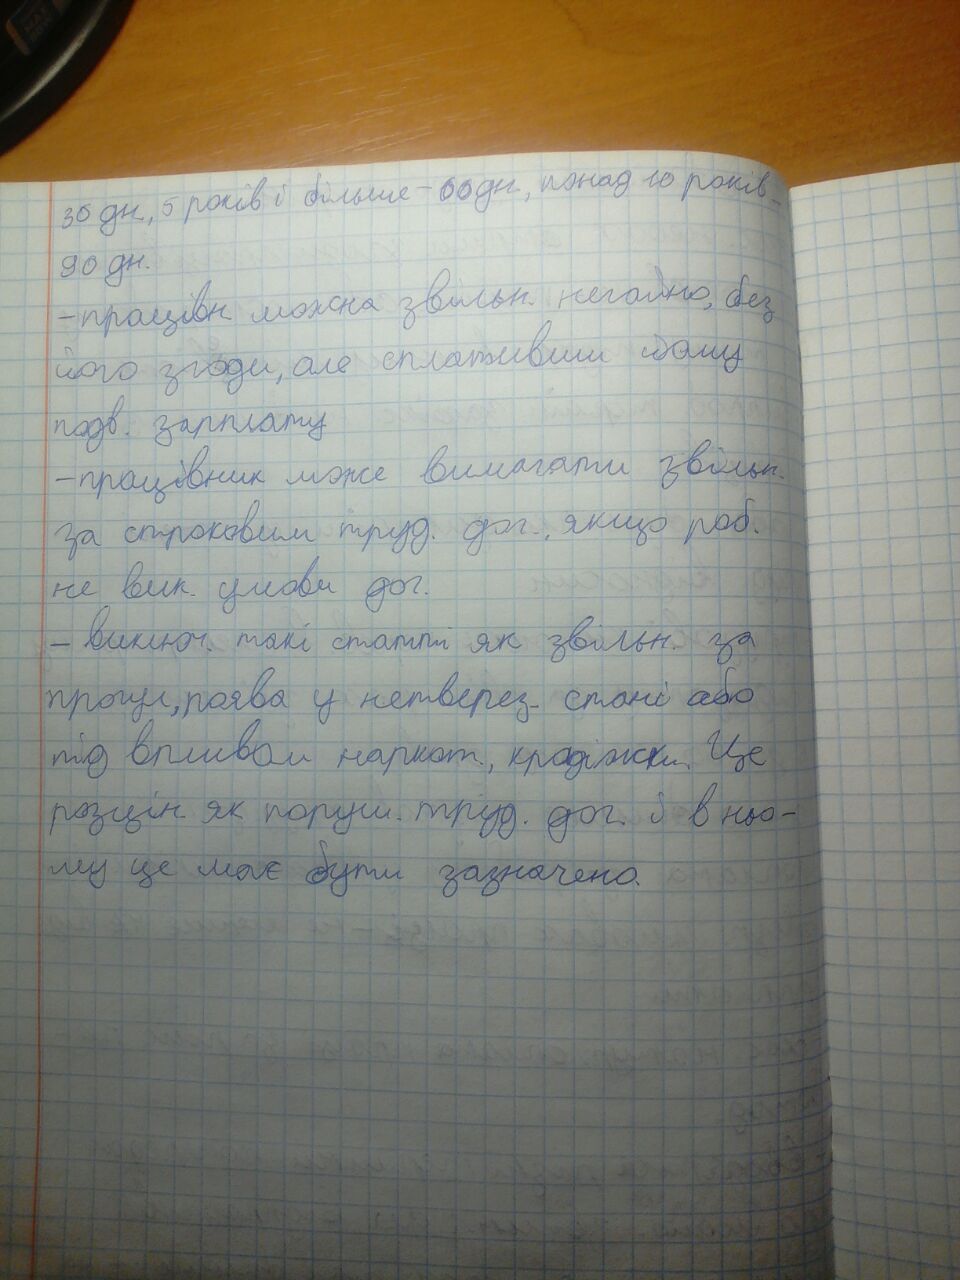 30 дн, 5 років і більше - 60 дн, понад 10 років -
90 дн.
- працівн. можна звільн. негайно, без
його згоди, але сплативши йому
подв. зарплату
- працівник може вимагати звільн.
за строковим труд. дог., якщо роб.
не вик. умови дог.
- виключ. такі статті як звільн. за
прогул, поява у нетверез. стані або
під впливом наркот., крадіжки. Це
розцін. як поруш. труд. дог. і в ньо-
му це має бути зазначено.